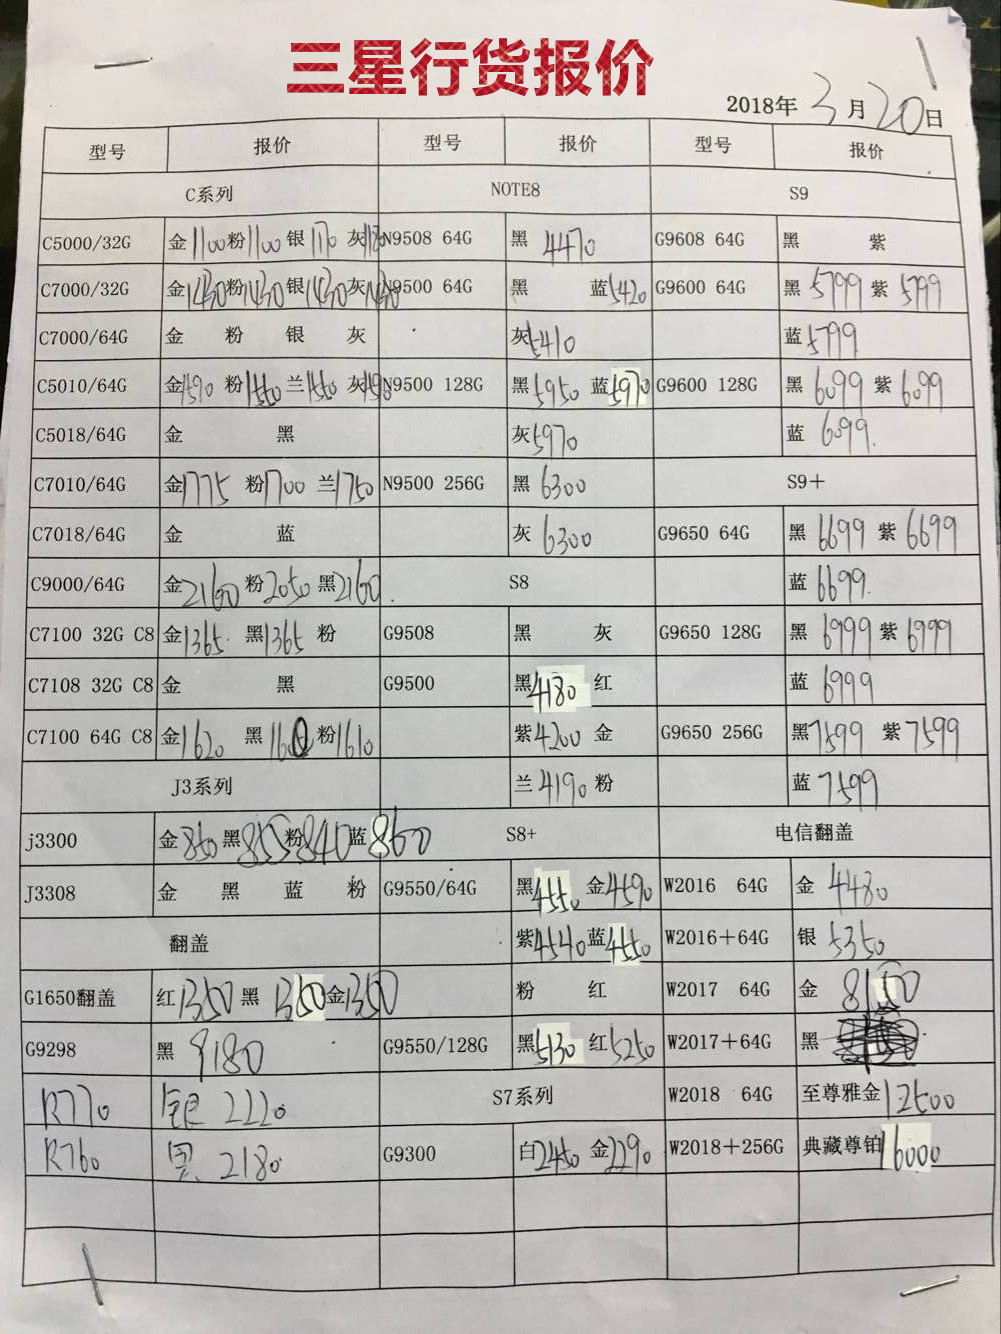 三星行货报价
2018年3月20日
型号 报价 型号 报价 型号 报价
C系列 NOTE8 S9
C5000/32G 金1100粉1100银1170灰 N9508 64G 黑 4470 G9608 64G 黑 紫
C7000/32G 金1430粉1430银1430灰1430 N9500 64G 黑 蓝5420 G9600 64G 黑5799紫5799
C7000/64G 金 粉 银 灰 灰5410 蓝5799
C5010/64G 金1490粉1550兰1550灰1490 N9500 128G 黑5950蓝5970 G9600 128G 黑6099紫6099
C5018/64G 金 黑 灰5970 蓝6099.
C7010/64G 金1775粉1700兰1750 N9500 256G 黑6300 S9+
C7018/64G 金 蓝 灰6300 G9650 64G 黑6699紫6699
C9000/64G 金2160粉2050黑2160. S8 蓝6699.
C7100 32G C8 金1365黑1365粉 G9508 黑 灰 G9650 128G 黑6999紫6999
C7108 32G C8 金 黑 G9500 黑4180红 蓝6999
C7100 64G C8 金1620黑粉1610 紫4200金 G9650 256G 黑7599紫7599
J3系列 兰4190粉 蓝7599
j3300 金850黑855粉840蓝860 S8+ 电信翻盖
J3308 金 黑 蓝 粉 G9550/64G 黑4550金4590 W2016 64G 金4480
翻盖 紫4540蓝4550 W2016+64G 银5350
G1650翻盖 红1350黑1350金1350 粉 红 W2017 64G 金
G9298 黑9180 G9550/128G 黑5130红5250 W2017+64G 黑
R770 银2220 S7系列 W2018 64G 至尊雅金12500
R760 黑2180 G9300 白2450金2290 W2018+256G 典藏尊铂16000